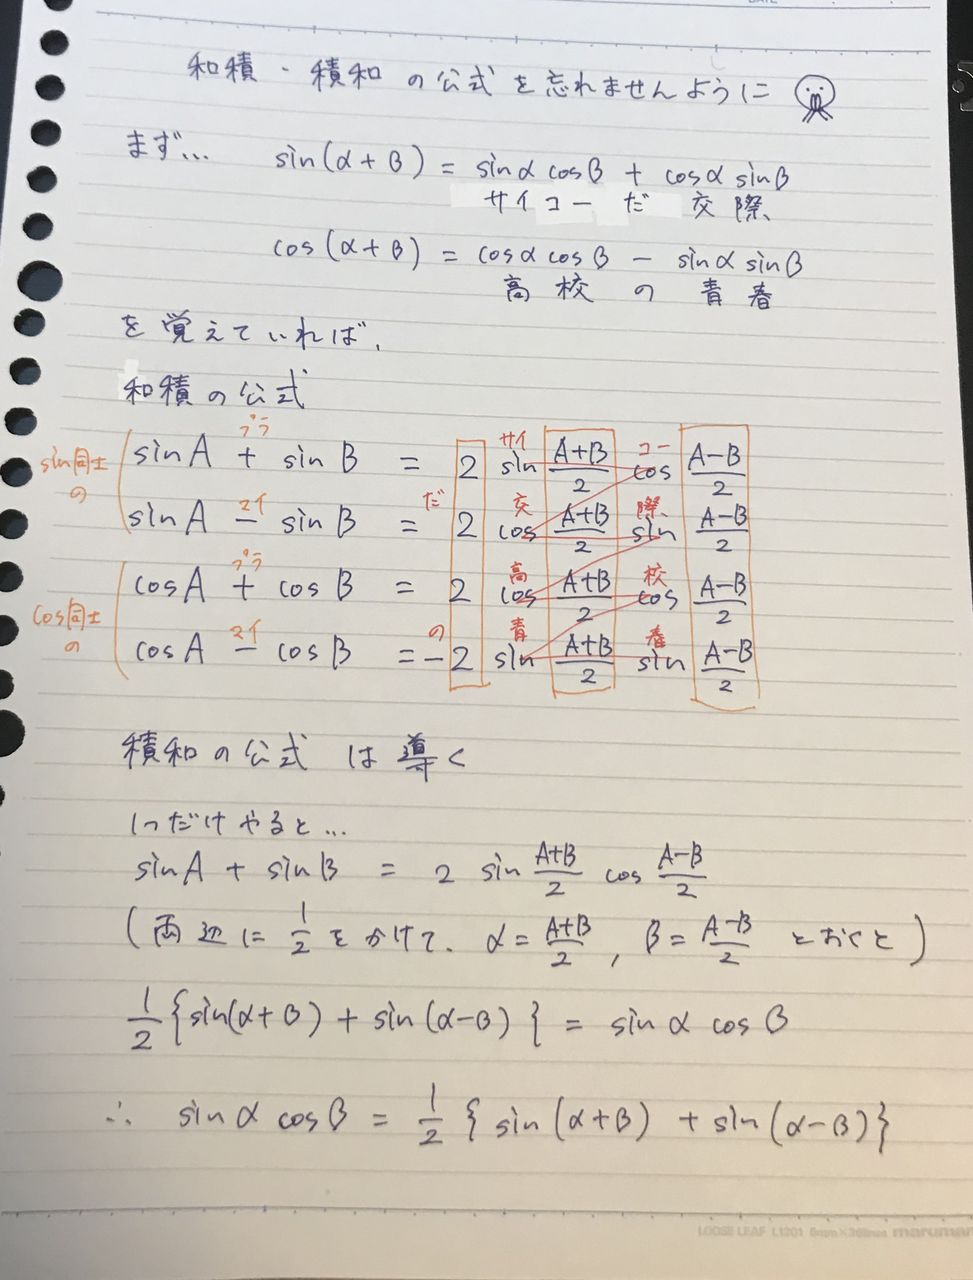 和積・積和の公式を忘れませんように
まず… sin(α+β) = sinα cosβ + cosα sinβ
サイコーだ 交際、
cos(α+β) = cosα cosβ − sinα sinβ
高校の青春
を覚えていれば、
和積の公式
sin同士の
プラ サイ コー
sinA + sin B = 2 sin (A+B)/2 cos (A−B)/2
マイ だ 交 際、
sinA − sin B = 2 cos (A+B)/2 sin (A−B)/2
cos同士の
プラ 高 校
cosA + cos B = 2 cos (A+B)/2 cos (A−B)/2
マイ の 青 春
cosA − cos B = −2 sin (A+B)/2 sin (A−B)/2
積和の公式は導く
1つだけやると…
sinA + sin B = 2 sin (A+B)/2 cos (A−B)/2
(両辺に 1/2 をかけて、α = (A+B)/2 , β = (A−B)/2 とおくと)
1/2 {sin(α+β) + sin(α−β)} = sin α cos β
∴ sinα cosβ = 1/2 {sin(α+β) + sin(α−β)}
LOOSE LEAF L1201 6mm×36lines maruman